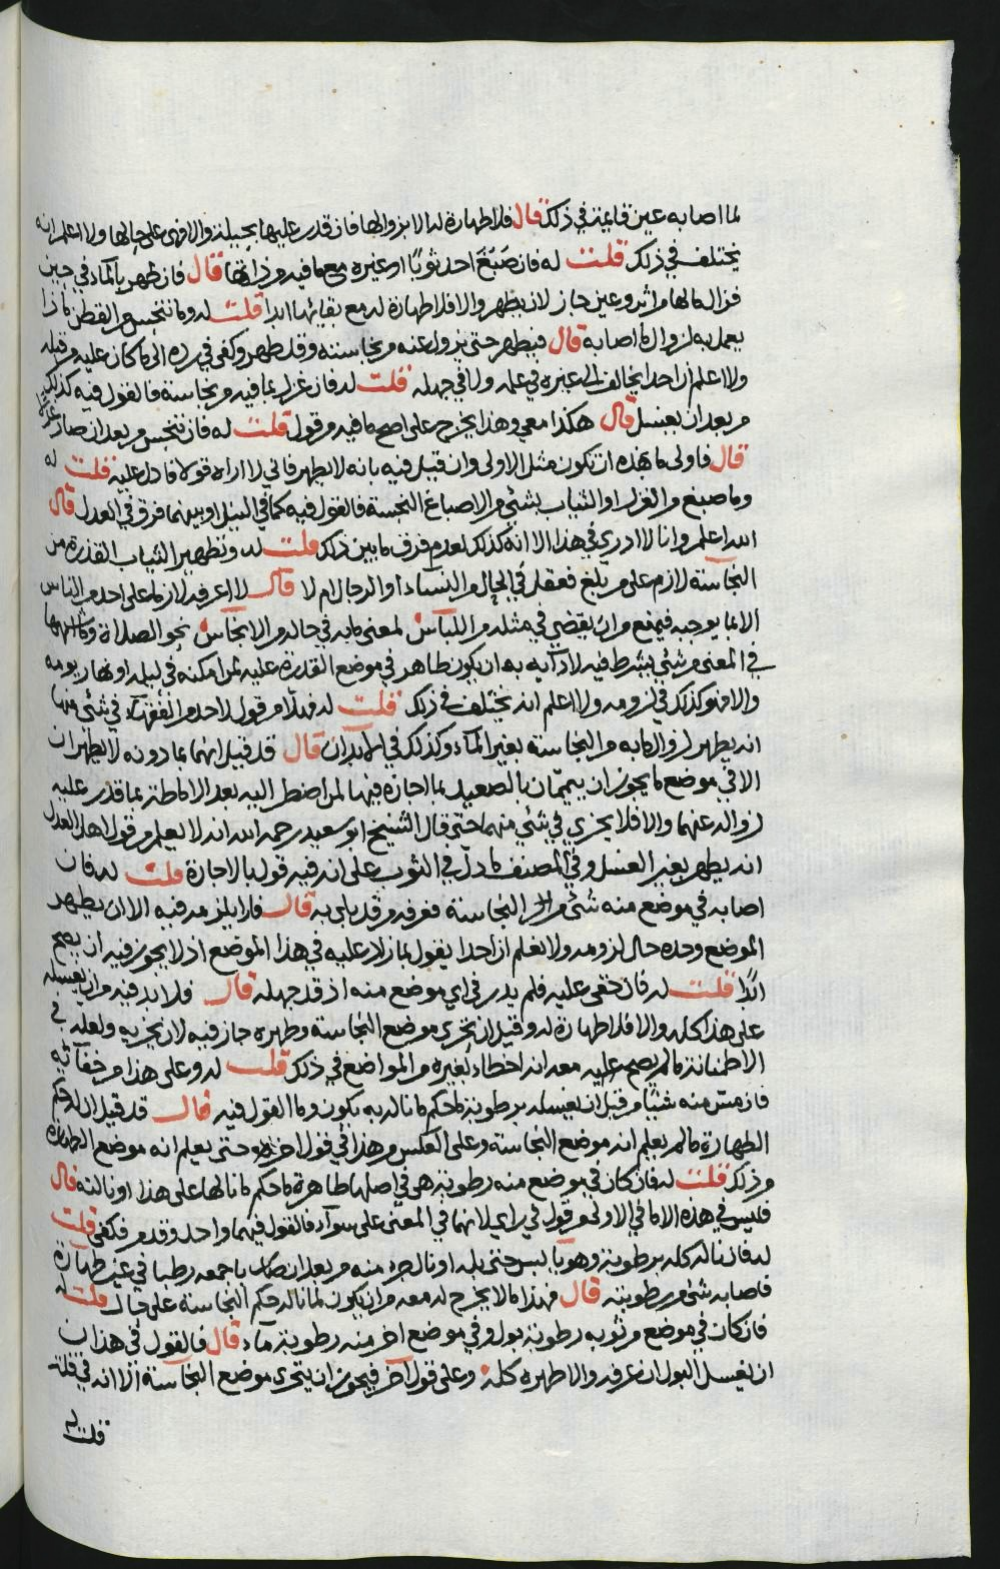 لما اصابه عين قايمة في ذلك قال فلا طهارة له الا بزوالها فان قدر عليها بحيلة والا فهي على حالها ولا اعلم انه
يختلف في ذلك قلت له فان صبغ احد ثوبا او غيره بما فيه من ذاتها قال فان طهر بالماء في حين
فزال مالها من اثر وعين جاز لان يطهر والا فلا طهارة له مع بقائها ابدا قلت له وما تنجس من القطن ماذا
يعمل به لزوال ما اصابه قال فيطهر حتى يزول عنه من نجاسته وقد طهر وكفى في رده الى ما كان عليه من قبله
ولا اعلم ان احدا يخالف الى غيره في علمه ولا في جهله قلت له فان غزل بما فيه من نجاسة فالقول فيه كذلك
من بعد ان يغسل قال هكذا معي وهذا يخرج على اصح ما فيه من قول قلت له فان تنجس من بعد ان صار غزلا
قال فاولى ما بهذه ان تكون مثل الاولى وان قيل فيه بانه لا يطهر فاني لا اراه قولا فادل عليه قلت له
وما صبغ من الغزل او الثياب بشئ من الاصباغ النجسة فالقول فيه كما في النيل او بينهما فرق في العدل قال
الله اعلم وانا لا ادري في هذا الا انه كذلك لعدم فرق ما بين ذلك قلت له وتطهير الثياب القذرة من
النجاسة لازم على من بلغ فعقل في الحال من النساء او الرجال ام لا قال لا اعرفه لازما على احد من الناس
الا لما يوجبه فيمنع من ان يقضي في مثله من اللباس لمعنى ما به في حاله من الانجاس نحو الصلاة وما اشبهها
في المعنى من شئ يشترط فيه لادآيه به ان يكون طاهر في موضع القدرة عليه لمن امكنه في ليله او نهار يومه
والا فهو كذلك في لزومه ولا اعلم انه يختلف في ذلك قلت له فهلا من قول لاحد من الفقهآء في شئ منها
انه يطهر لزوال ما به من النجاسة بغير المآء وكذلك في الابدان قال قد قيل انهما بما دونه لا يطهران
الا في موضع ما يجوز ان يتيممان بالصعيد لما اجازه فيها لمن اضطر اليه بعد الاماطة بما قدر عليه
لزواله عنهما والا فلا يجزي في شئ منهما حتى قال الشيخ ابو سعيد رحمه الله انه لا يعلم من قول اهل العدل
انه يطهر بغير الغسل وفي المصنف ما دل في الثوب على انه فيه قول بالاجازة قلت له فان
اصابه في موضع منه شئ من النجاسة فعرفه من قد بلي به قال فلا يلزمه فيه الا ان يطهر
الموضع وحده حال لزومه ولا نعلم ان احدا يقول بما زاد عليه في هذا الموضع اذ لا يجوز فيه ان يصح
ابدا قلت له فان خفى عليه فلم يدر في اي موضع منه اذ قد جهله قال فلا بد فيه من ان يغسله
على هذا كله والا فلا طهارة له وقيل ان تحرى موضع النجاسة وطهره جاز فيه لان يجزيه ولعله في
الاطمئنانة ما لم يصح عليه معه انه اخطاه لغيره من المواضع في ذلك قلت له وعلى هذا من خفآئه
فان مس منه شيئا من قبل ان يغسله برطوبة ما حكم ما ناله به يكون وما القول فيه قال قد قيل ان له حكم
الطهارة ما لم يعلم انه موضع النجاسة وعلى العكس من هذا في قول اخر حتى يعلم انه موضع الطهارة
من ذلك قلت له فان كان في موضع منه رطوبة هي في اصلها طاهرة ما حكم ما نالها على هذا او نالته قال
فليس في هذه الا ما في الاولى من قول في رايي لانهما في المعنى على سوآء فالقول فيهما واحد وقد مر فكفى قلت
له فان ناله كله برطوبة وهو يابس حتى بله او نال جزء منه من بعد ان صار باجمعه رطبا في غير طهارة
فاصابه شئ من رطوبته قال فهذا ما لا يخرج له معه من ان يكون لما ناله حكم النجاسة على حال قلت له
فان كان في موضع من ثوبه رطوبة بول وفي موضع اخر منه رطوبة مآء قال فالقول في هذا ان
ان يغسل البول ان عرفه والا طهره كله وعلى قول آخر فيجوز ان يتحرى موضع النجاسة الا انه في قلة
قلت له